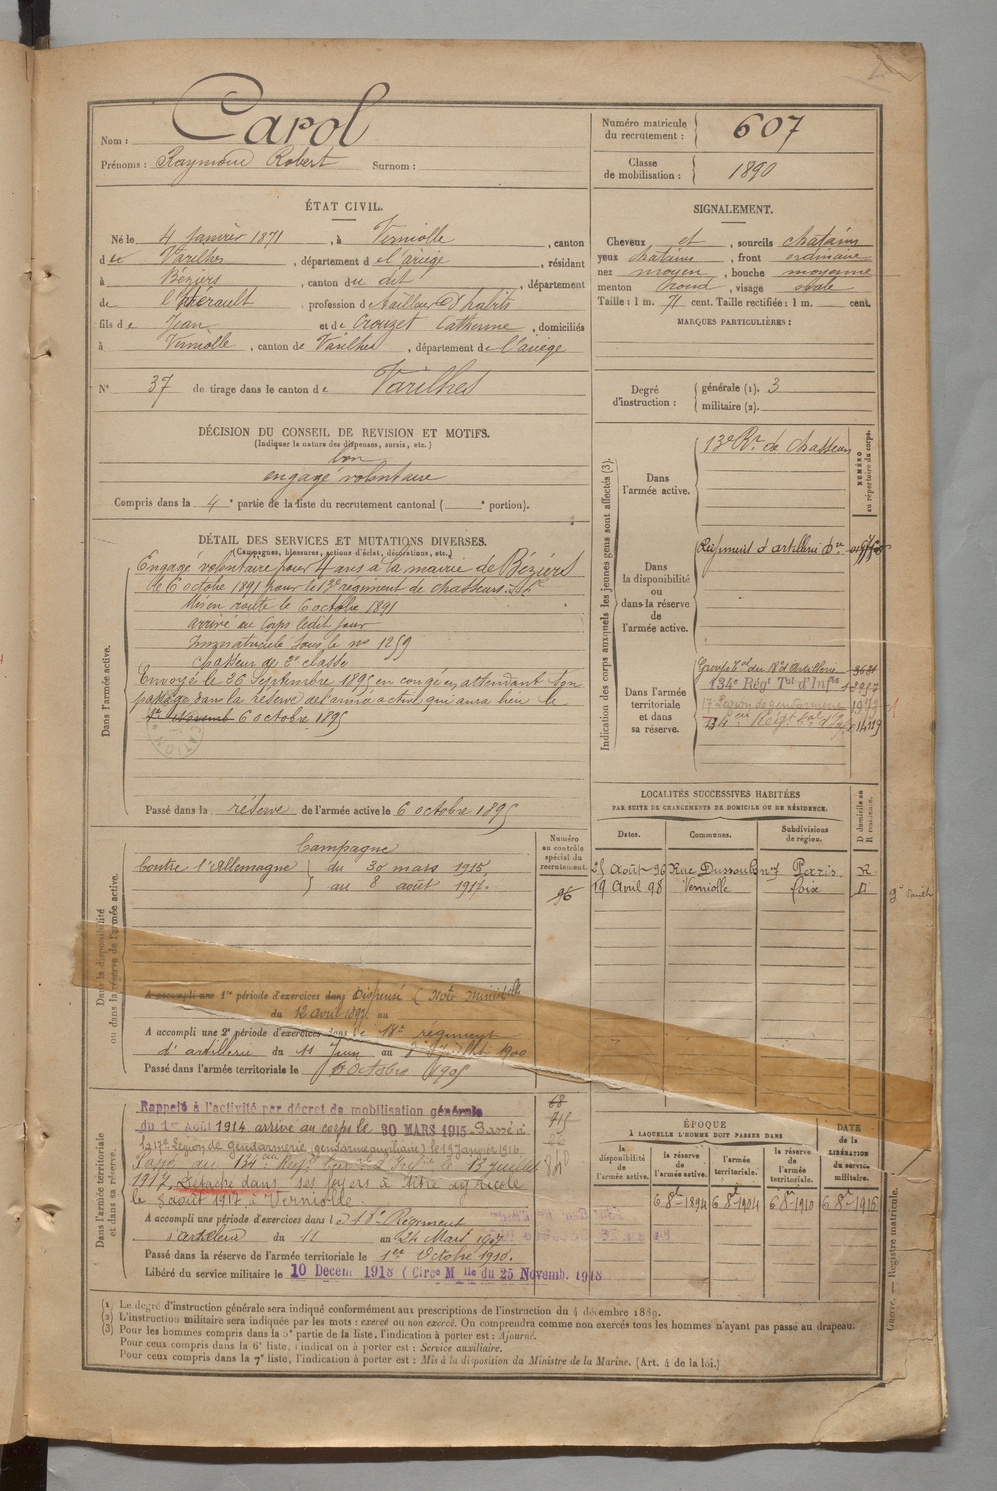 Nom : Carol
Prénoms : Raymond Robert Surnom :
Numéro matricule du recrutement : 607
Classe de mobilisation : 1890
ÉTAT CIVIL.
Né le 4 Janvier 1871, à Verniolle, canton
de Varilhes, département de l'ariège, résidant
à Béziers, canton du dit, département
de l'Hérault, profession de tailleur d'habits
fils de Jean et de Crouzet Catherine, domiciliés
à Verniolle, canton de Varilhes, département de l'ariège
N° 37 de tirage dans le canton de Varilhes
SIGNALEMENT.
Cheveux et, sourcils chatains
yeux chatains, front ordinaire
nez moyen, bouche moyenne
menton rond, visage ovale
Taille : 1 m. 71 cent. Taille rectifiée : 1 m. cent.
MARQUES PARTICULIÈRES :
Degré d'instruction : générale (1). 3
militaire (2).
DÉCISION DU CONSEIL DE REVISION ET MOTIFS.
(Indiquer la nature des dispenses, sursis, etc.)
bon
engagé volontaire
Compris dans la 4e partie de la liste du recrutement cantonal ( e portion).
DÉTAIL DES SERVICES ET MUTATIONS DIVERSES.
(Campagnes, blessures, actions d'éclat, décorations, etc.)
Dans l'armée active.
Engagé volontaire pour 4 ans à la mairie de Béziers
le 6 octobre 1891 pour le 13e régiment de chasseurs
Mis en route le 6 octobre 1891
arrivé au Corps ledit jour
Immatriculé sous le no 1259
chasseur de 2e classe
Envoyé le 26 Septembre 1895 en congé en attendant son
passage dans la réserve de l'armée active qui aura lieu le
6 octobre 1895
Passé dans la réserve de l'armée active le 6 octobre 1895
Indication des corps auxquels les jeunes gens sont affectés (3).
NUMÉRO au répertoire du corps.
Dans l'armée active.
13e Rt de chasseurs
Dans la disponibilité ou dans la réserve de l'armée active.
Régiment d'artillerie
Dans l'armée territoriale et dans sa réserve.
Groupe Tal du 18e d'Artillerie
134e Régt Tal d'Infie
17 Légion de gendarmerie
LOCALITÉS SUCCESSIVES HABITÉES
PAR SUITE DE CHANGEMENTS DE DOMICILE OU DE RÉSIDENCE.
Dates. Communes. Subdivisions de région. D domicile ou R résidence.
25 Août 96 Rue Dussoubs n°7 Paris R
19 Avril 98 Verniolle foix D
Numéro au contrôle spécial du recrutement.
Dans la disponibilité ou dans la réserve de l'armée active.
Campagne
Contre l'Allemagne du 30 mars 1915
au 8 août 1917.
96
A accompli une 1re période d'exercices dans Dispensé (Note Ministelle
du 12 avril 1897 au
A accompli une 2e période d'exercices dans le 18e régiment
d'artillerie du 11 Juin au Juillet 1900
Passé dans l'armée territoriale le 6 Octobre 1905
Dans l'armée territoriale et dans sa réserve.
Rappelé à l'activité par décret de mobilisation générale
du 1er Août 1914 arrivé au corps le 30 MARS 1915 Passé à
la 17e Légion de gendarmerie (gendarme auxiliaire) le 19 Janvier 1916
Passé au 134eme Régt Terral d'Infie le 13 Juillet
1917. Détaché dans ses foyers à titre agricole
le 8 août 1917, à Verniolle.
A accompli une période d'exercices dans le 18e Régiment
d'artillerie du 11 au 24 Mars 1907
Passé dans la réserve de l'armée territoriale le 1er Octobre 1910.
Libéré du service militaire le 10 Decem 1918 (Circe Mlle du 25 Novemb. 1918
ÉPOQUE
À LAQUELLE L'HOMME DOIT PASSER DANS
DATE de la LIBÉRATION du service militaire.
la disponibilité de l'armée active.
la réserve de l'armée active.
l'armée territoriale.
la réserve de l'armée territoriale.
6 8bre 1894 6 8bre 1904 6 8bre 1910 6 8bre 1915
(1) Le degré d'instruction générale sera indiqué conformément aux prescriptions de l'instruction du 4 décembre 1889.
(2) L'instruction militaire sera indiquée par les mots : exercé ou non exercé. On comprendra comme non exercés tous les hommes n'ayant pas passé au drapeau.
(3) Pour les hommes compris dans la 5e partie de la liste, l'indication à porter est : Ajourné.
Pour ceux compris dans la 6e liste, l'indication à porter est : Service auxiliaire.
Pour ceux compris dans la 7e liste, l'indication à porter est : Mis à la disposition du Ministre de la Marine. (Art. 4 de la loi.)
Guerre. — Registre matricule.